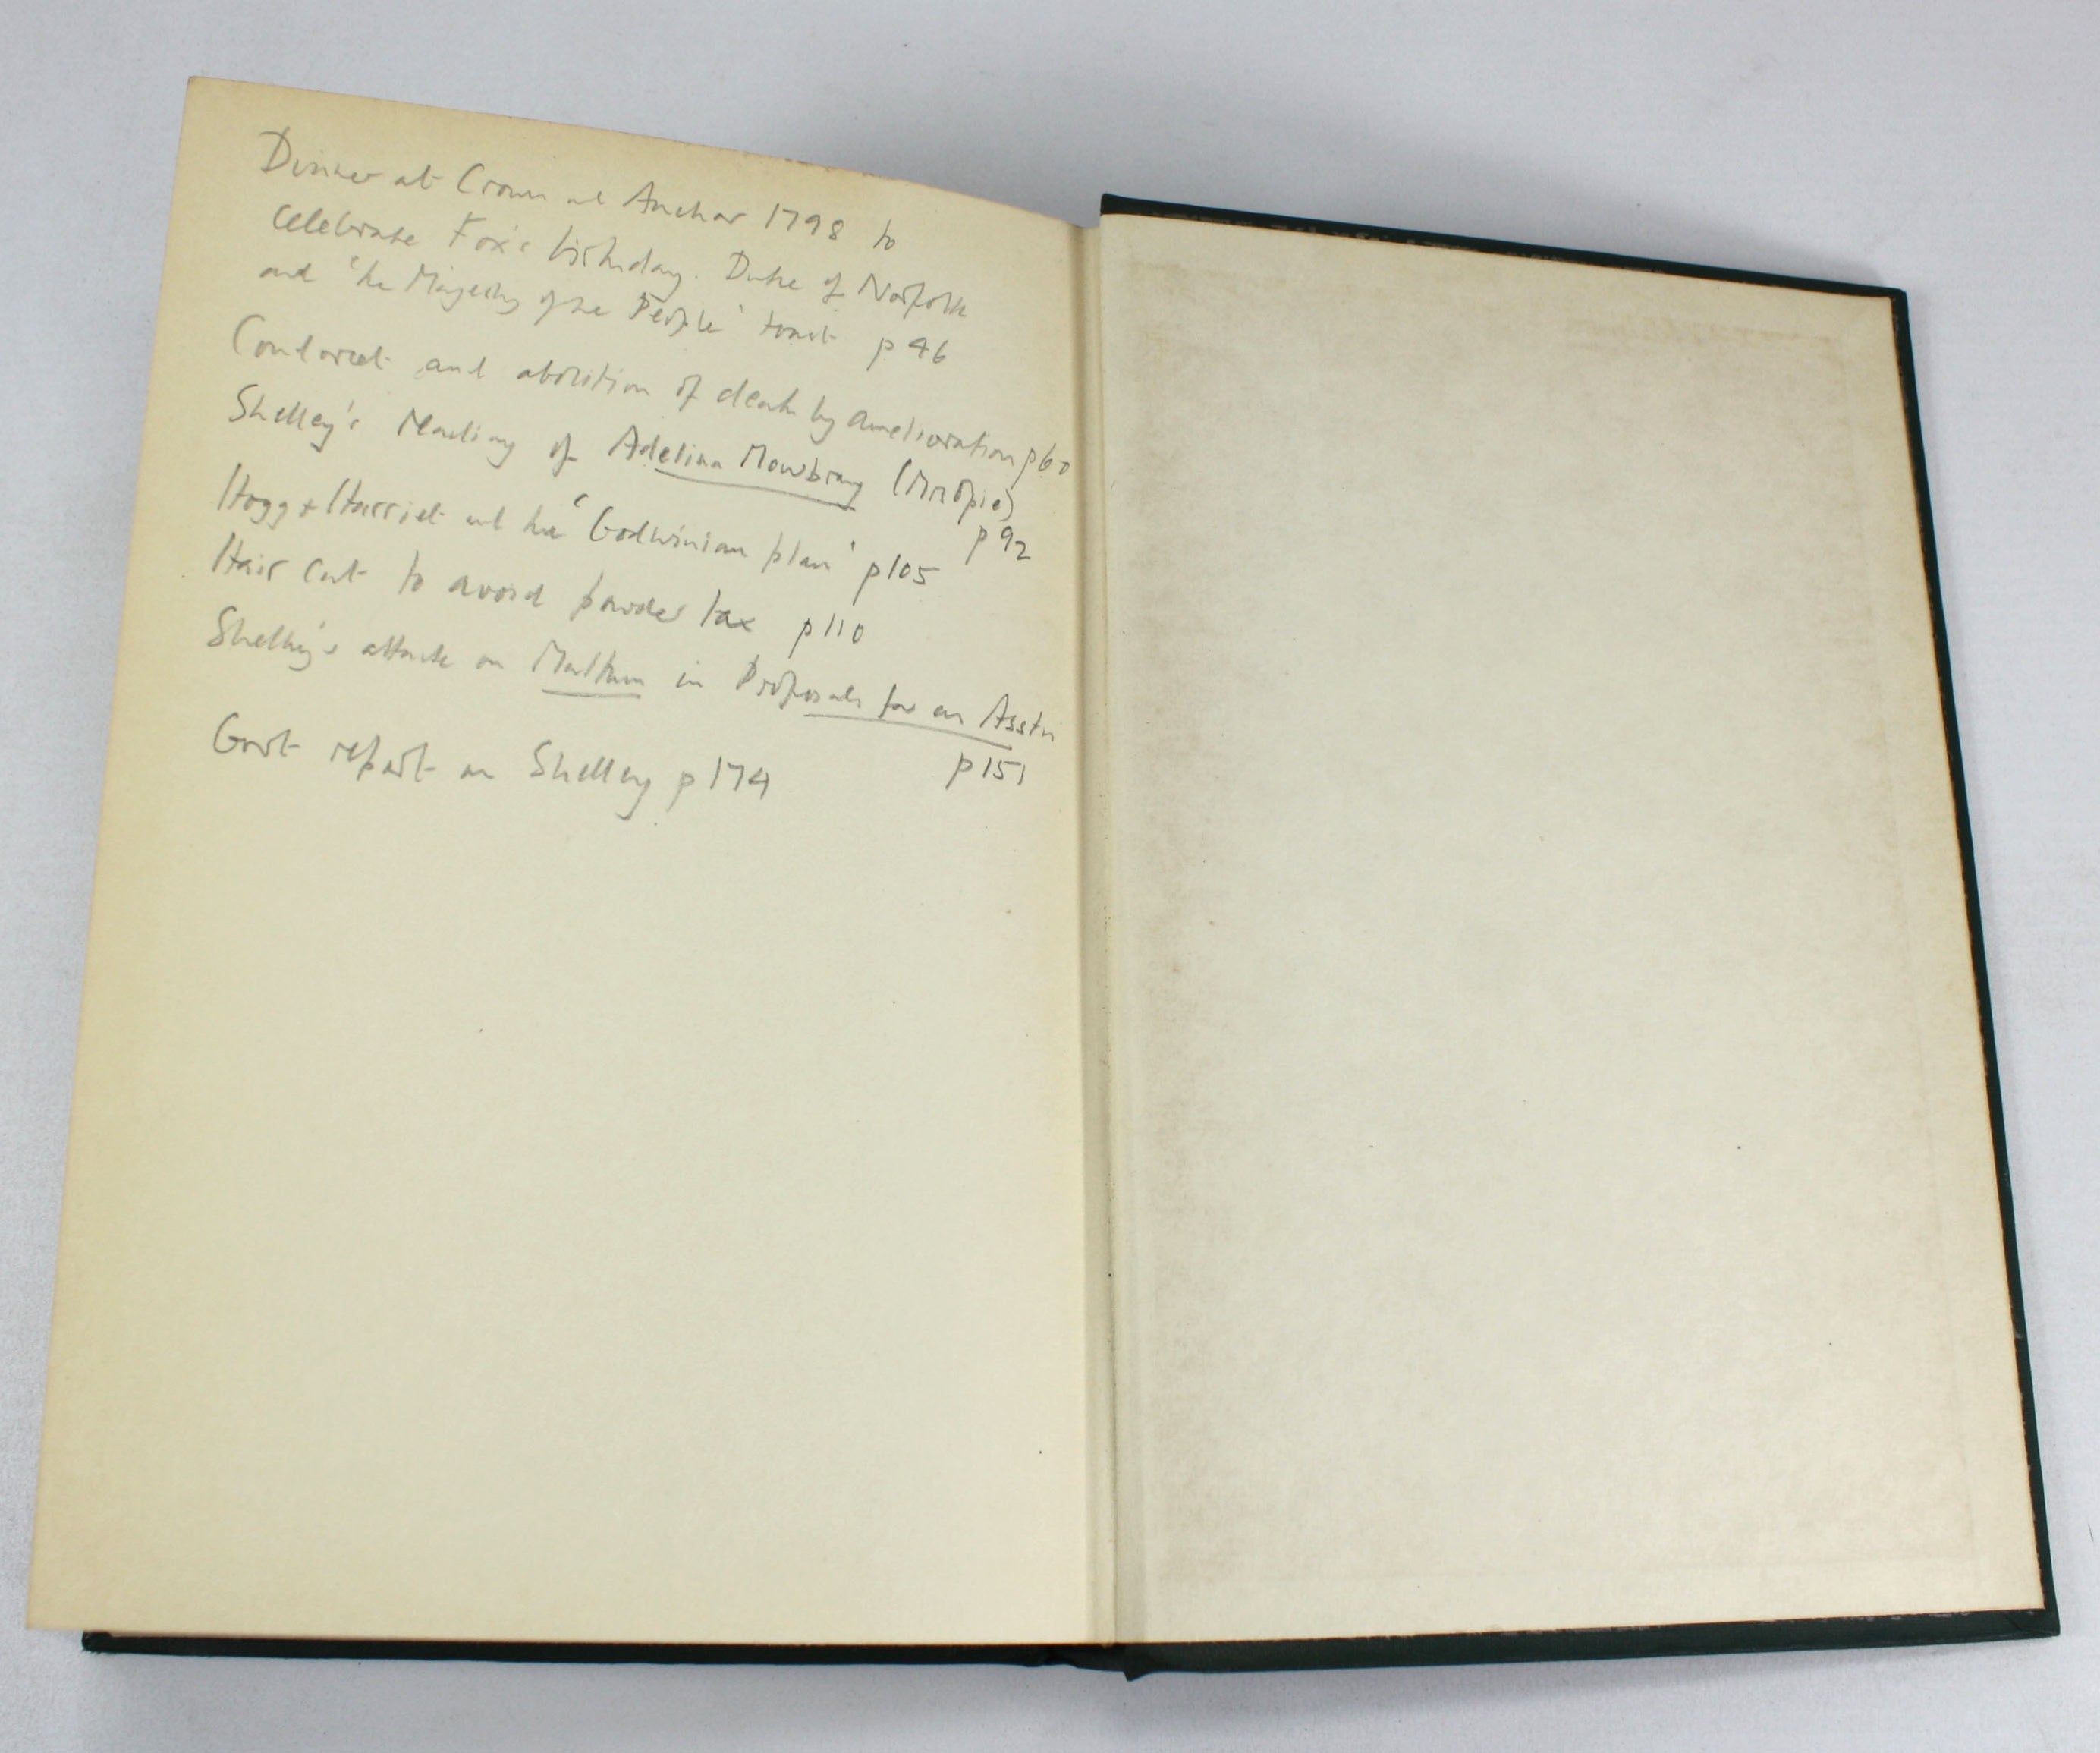 Dinner at Crown and Anchor 1798 to
celebrate Fox's birthday. Duke of Norfolk
and 'the Majesty of the People' toast p 46
Condorcet and abolition of death by amelioration p60
Shelley's reading of Adelina Mowbray (Mrs Opie)
p92
Hogg + Harriet and the 'Godwinian plan' p105
Hair cut to avoid powder tax p110
Shelley's attack on Malthus in Proposals for an Assctn
p151
Govt report on Shelley p174